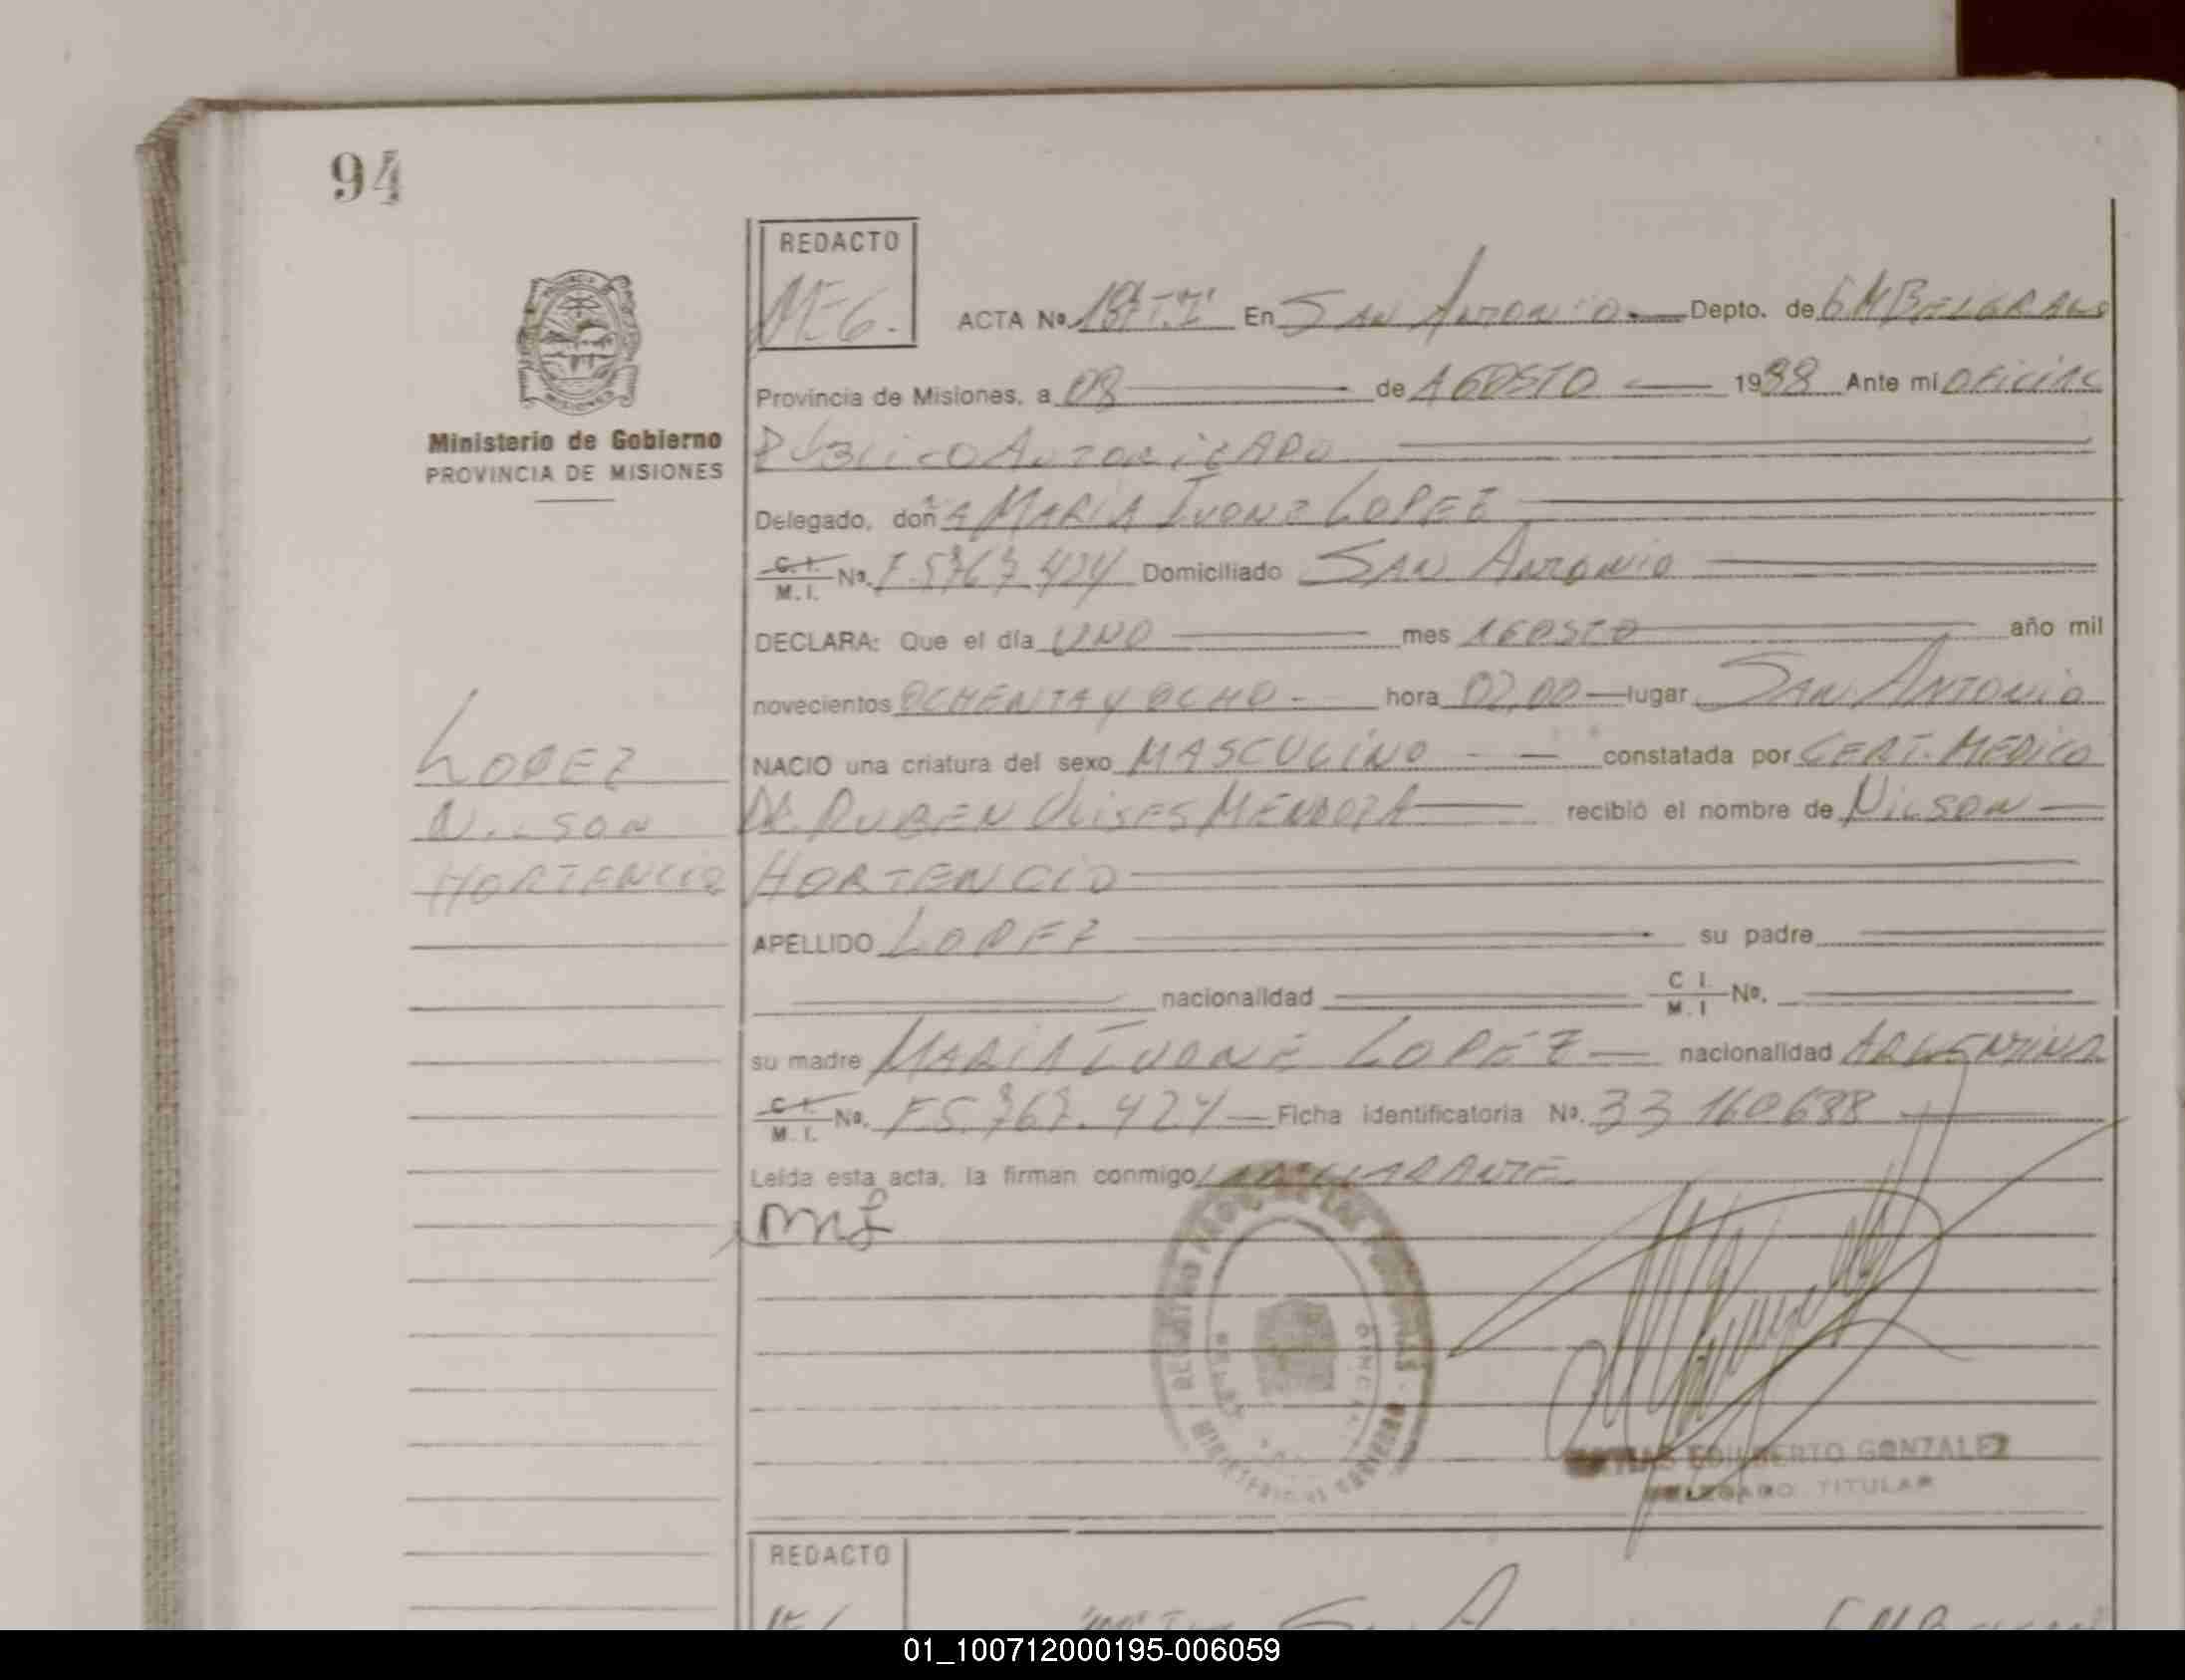 94
REDACTO
ME6.
ACTA Nº 187 T.I En SAN ANTONIO Depto. de GMBELGRANO
Provincia de Misiones, a 08 de AGOSTO 1988 Ante mi OFICIAL
Ministerio de Gobierno
PROVINCIA DE MISIONES
PUBLICO AUTORIZADO
Delegado, doña MARIA IVONE LOPEZ
C. I. M. I. Nº F.5767.424 Domiciliado SAN ANTONIO
DECLARA: Que el día UNO mes AGOSTO año mil
novecientos OCHENTA Y OCHO hora 02,00 lugar SAN ANTONIO
NACIO una criatura del sexo MASCULINO constatada por CERT. MEDICO
DR. RUBEN ULISES MENDOZA recibió el nombre de NILSON
HORTENCIO
LOPEZ
NILSON
HORTENCIO
APELLIDO LOPEZ su padre
nacionalidad C I. M. I Nº.
su madre MARIA IVONE LOPEZ nacionalidad ARGENTINA
C I. M. I. Nº. F.5.767.424 Ficha identificatoria Nº. 33 160688
Leída esta acta, la firman conmigo LA DECLARANTE
mL
REGISTRO PROV. DE LAS PERSONAS
MINISTERIO DE GOBIERNO
EDILBERTO GONZALEZ
DELEGADO TITULAR
REDACTO
01_100712000195-006059